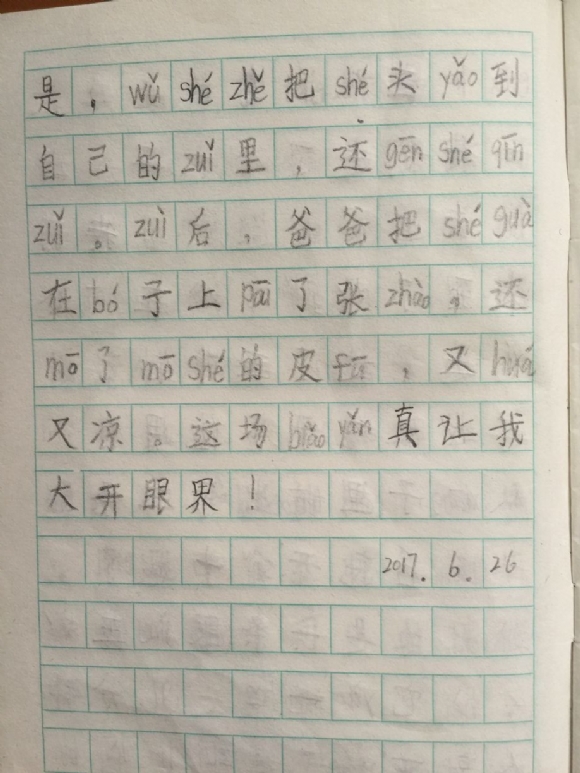 是，wǔ shé zhě 把 shé 头 yǎo 到
自己的 zuǐ 里，还 gēn shé qīn
zuǐ。zuì 后，爸爸把 shé guà
在 bó 子上 pāi 了张 zhào，还
mō 了 mō shé 的皮 fū，又 huá
又凉。这场 biǎo yǎn 真让我
大开眼界！
2017.6.26